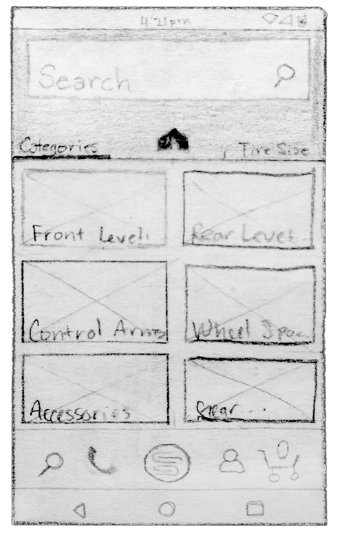 4:21pm
Search
Categories
Tire Size
Front Level.
Rear Level...
Control Arms
Wheel Spac...
Accessories
Gear...
0